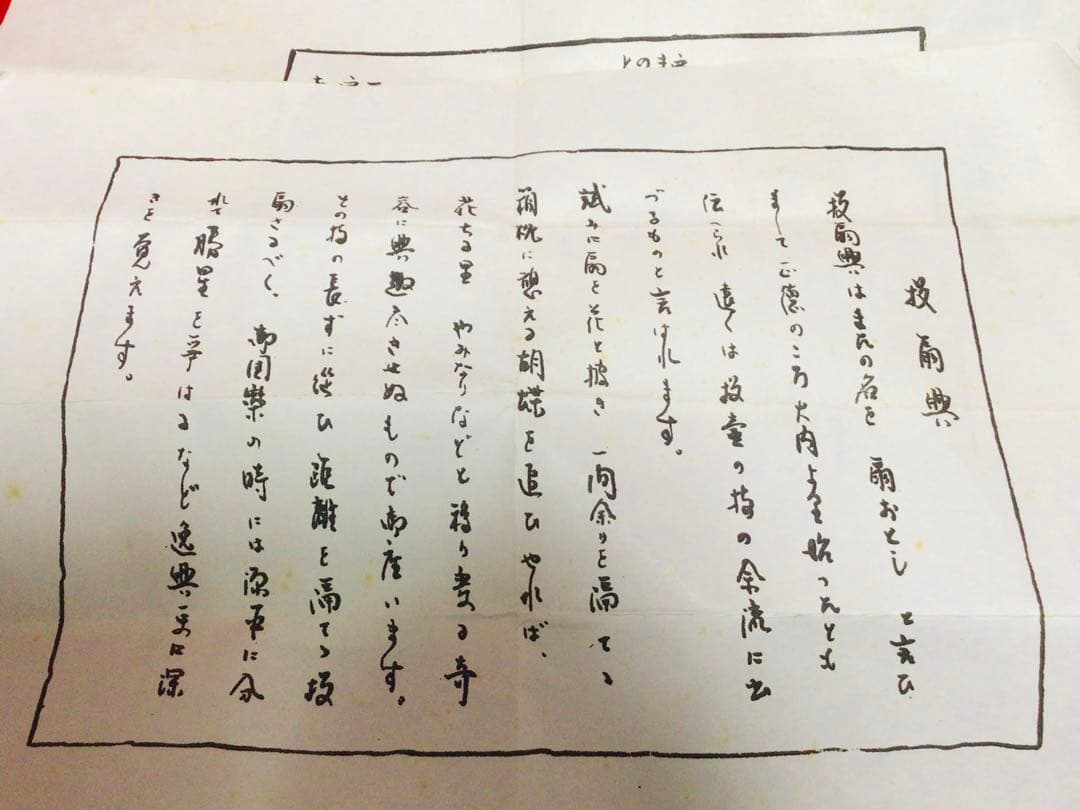 投扇興
投扇興はまたの名を 扇おとし と言ひ
まして 正徳のころ大内より始つたとも
伝へられ 遠くは投壷の技の余流に出
づるものと言はれます。
試みに扇を花と披き 一間余りを隔てゝ
箱枕に憩える胡蝶を追ひやれば、
花ちる里 やみなりなどと移り変る奇
容に興趣尽きせぬもので御座います。
その技の長ずに従ひ 距離を隔てゝ投
扇さるべく、 御団欒の時には源平に分
れて 勝星を争はるなど逸興更に深
きを覚えます。